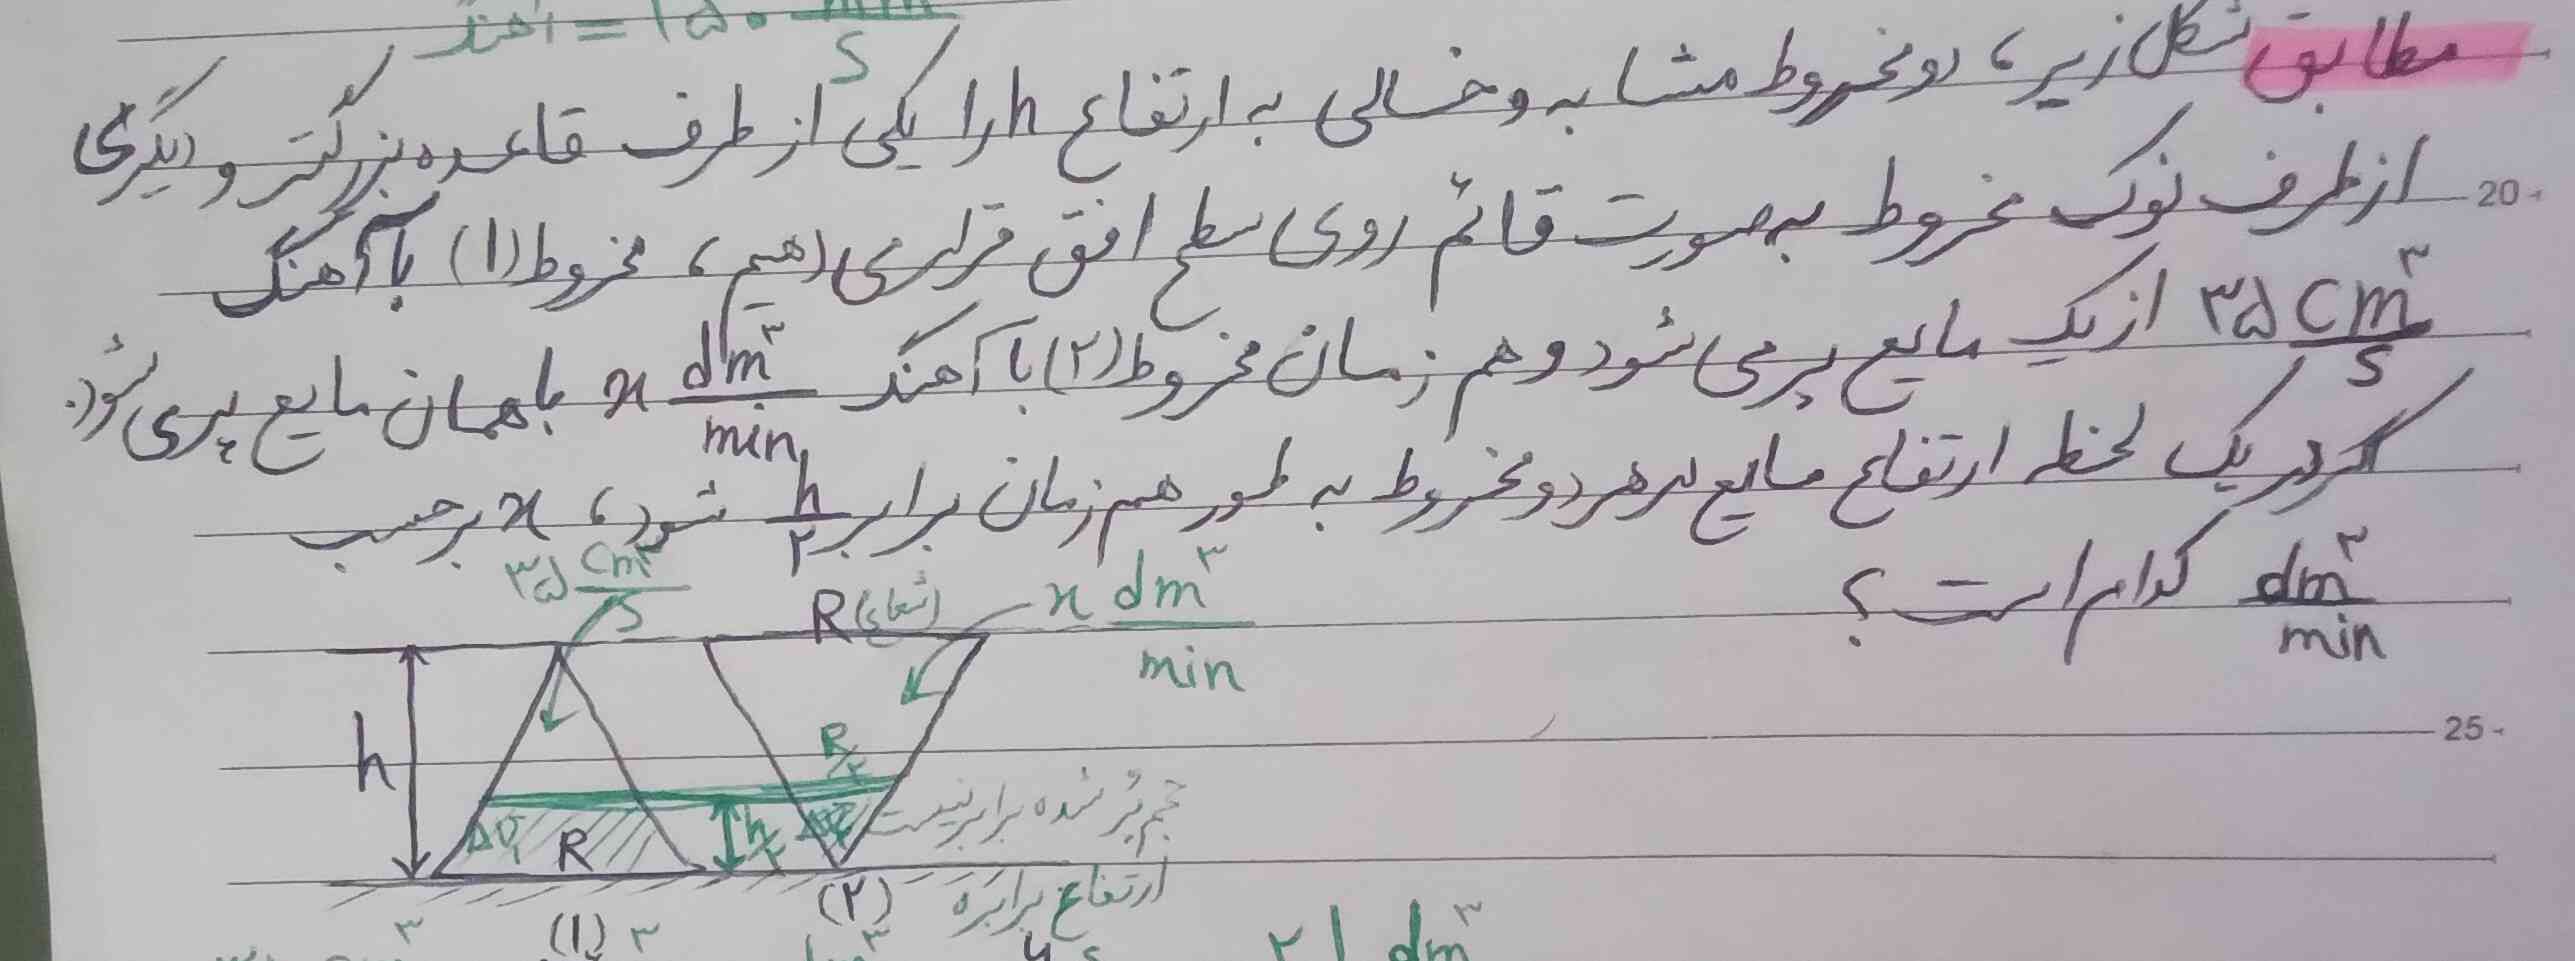 آهنگ = ۱۵۰
s
مطابق شکل زیر، دو مخروط مشابه و خالی به ارتفاع h را یکی از طرف قاعده بزرگتر و دیگری
از طرف نوک مخروط به صورت قائم روی سطح افق قرار می دهیم، مخروط (۱) با آهنگ
۳۵ cm³/s از یک مایع پر می شود و هم زمان مخروط (۲) با آهنگ x dm³/min با همان مایع پر می شود.
گر در یک لحظه ارتفاع مایع در هر دو مخروط به طور هم زمان برابر h/۲ شود، x بر حسب
dm³/min کدام است؟
۳۵ cm³/s
R (شعاع)
x dm³/min
h
R/۲
حجم پر شده برابر نیست
ΔV₁
R
h/۲
ΔV₂
ارتفاع برابره
(۱)
(۲)
۲۱ dm³
20
25